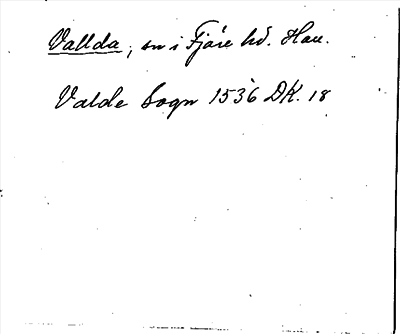 Vallda, sn i Fjäre hd. Hall.
Valde Sogn 1536 DK. 18